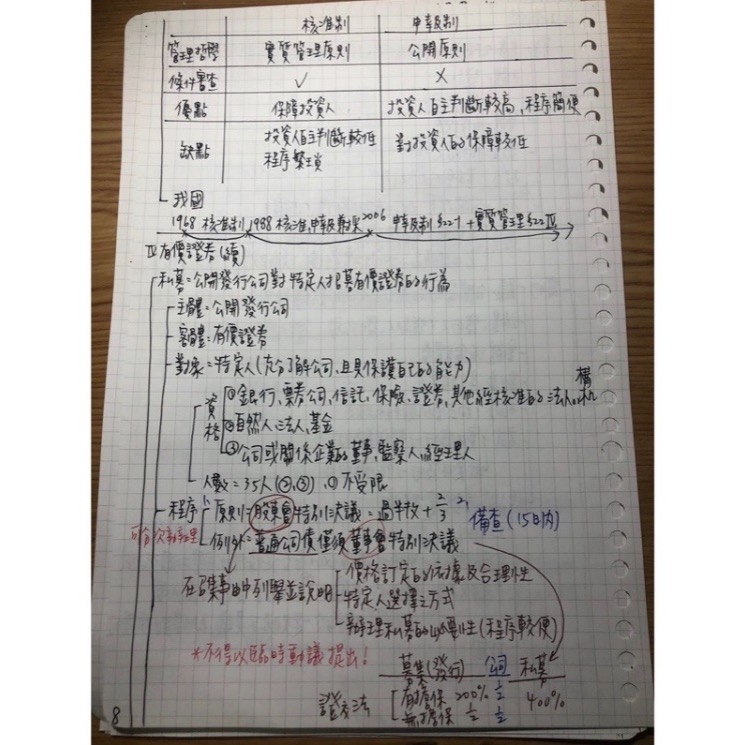 核准制 申報制
管理哲學 實質管理原則 公開原則
條件審查 ✓ ×
優點 保障投資人 投資人自主判斷較高、程序簡便
缺點 投資人自主判斷較低 對投資人的保障較低
程序繁瑣
我國
1968 核准制 1988 核准、申報兼採 2006 申報制 §22-1 + 實質管理 §22 IV
有價證券(續)
私募=公開發行公司對特定人招募有價證券的行為
主體=公開發行公司
客體=有價證券
對象=特定人(充分了解公司、且具保護自己的能力)
資格 ①銀行、票券公司、信託、保險、證券、其他經核准的法人or機構
②自然人、法人、基金
③公司或關係企業的董事、監察人、經理人
人數=35人(②、③)、①不受限
程序 原則=股東會特別決議=過半數+2/3 備查(15日內)
可分次辦理 例外=普通公司債僅須董事會特別決議
在召集事由中列舉並說明 價格訂定的依據及合理性
特定人選擇之方式
辦理私募的必要性(程序較便)
*不得以臨時動議提出!
募集(發行) 公司 私募
證交法 有擔保 200% 400%
無擔保
8